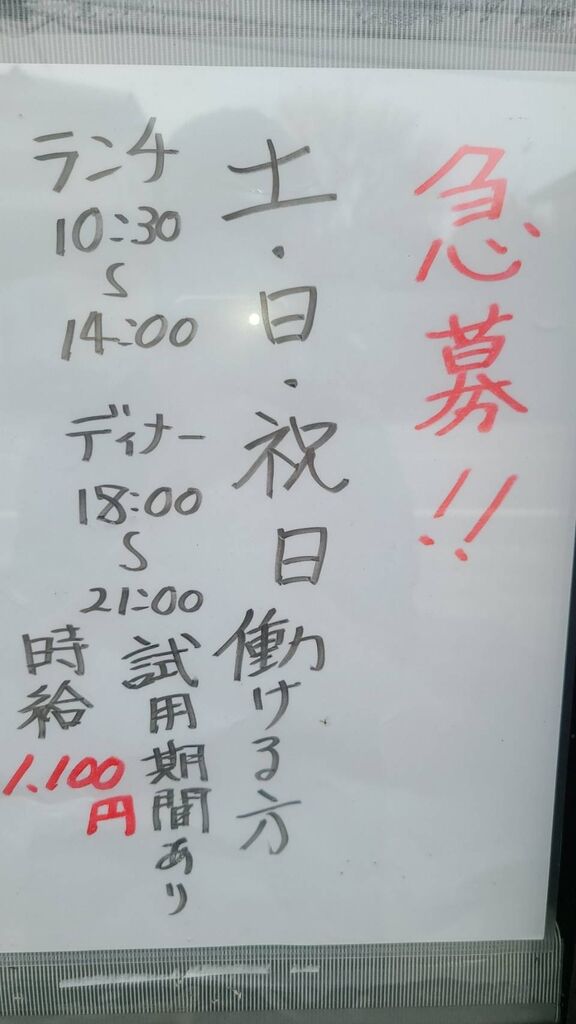 急募!!
土・日・祝日働ける方
ランチ
10:30
〜
14:00
ディナー
18:00
〜
21:00
試用期間あり
時給
1.100
円